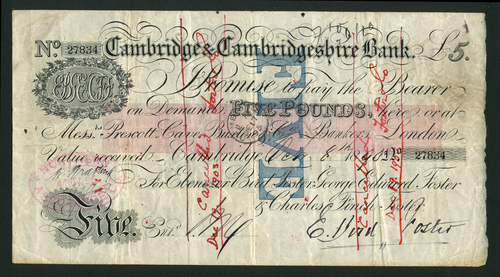 No. 27834 Cambridge & Cambridgeshire Bank. £5.
Promise to pay the Bearer
on Demand FIVE POUNDS, here or at
Messrs. Prescott, Cave, Buxton & Co. Bankers London
Value received Cambridge No. 27834
For Ebenezer Bird Foster, George Edward Foster
& Charles Finch Foster
Five. Ent.
E. Bird Foster
FIVE
Cancelled
Dec 1903
Cancelled
Dec 1903